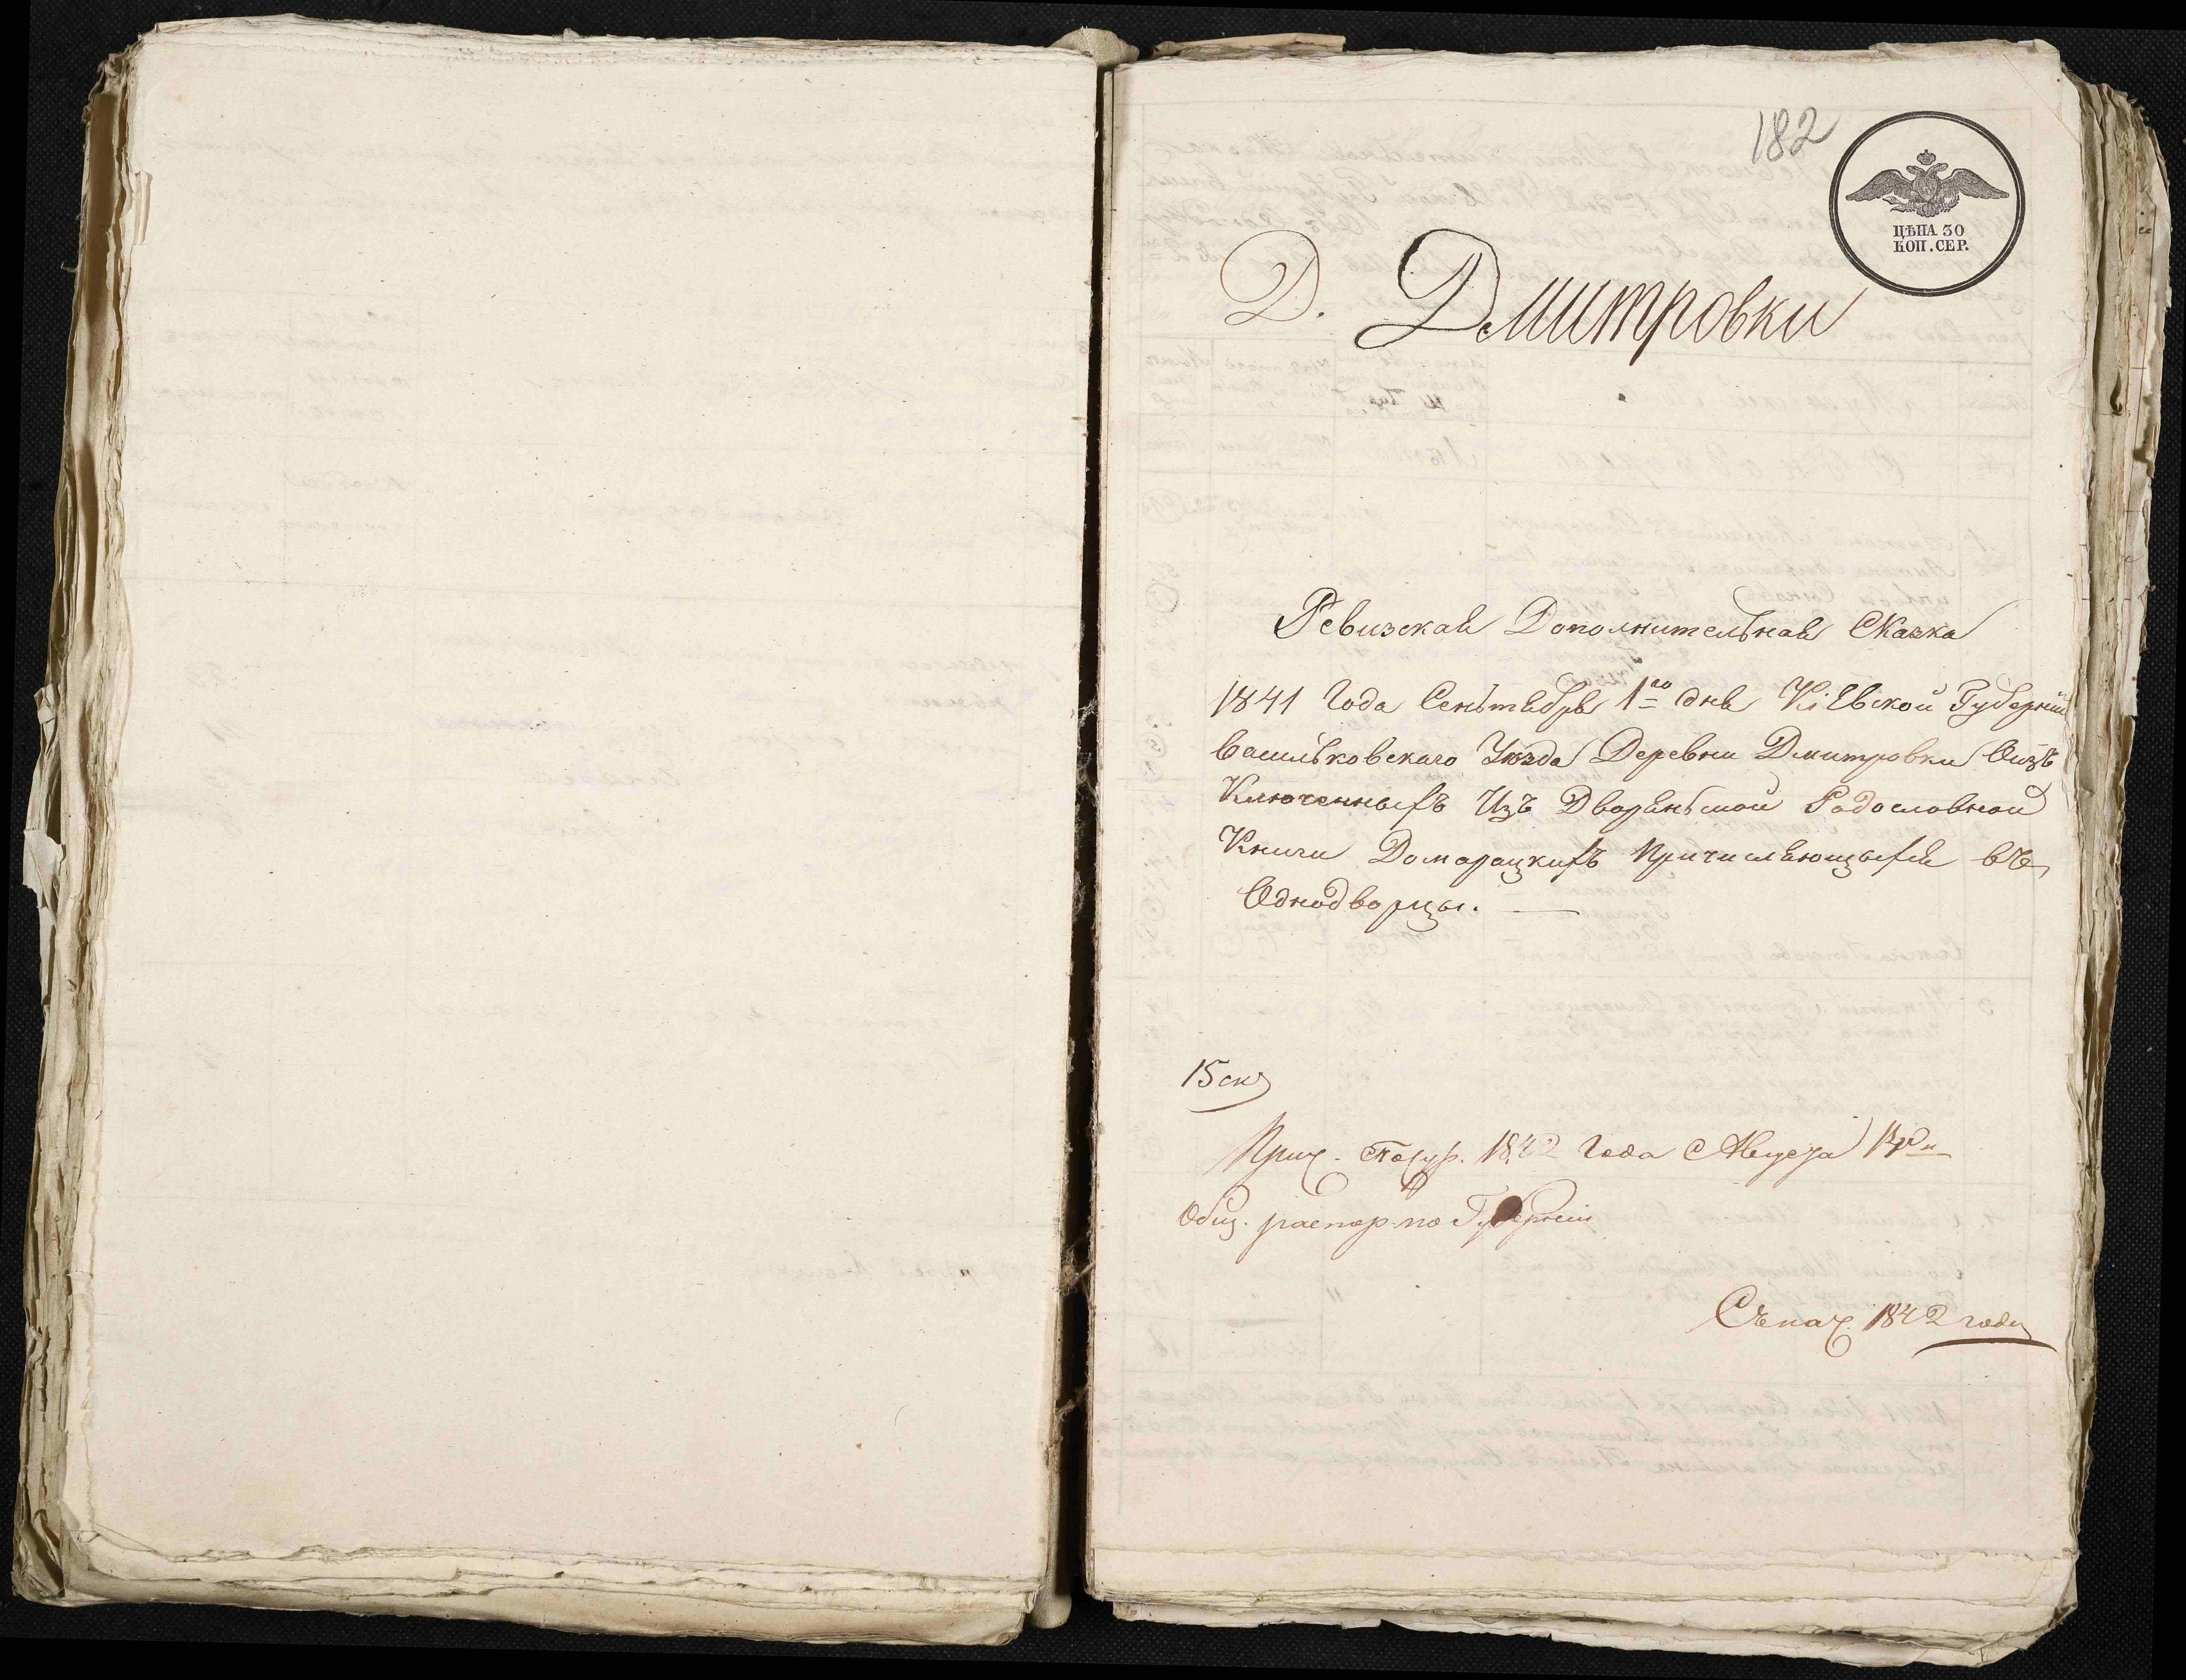 182
ЦѢНА 30
КОП. СЕР.
Д. Дмитровки
Ревизская Дополнительная Сказка
1841 Года Сеньтября 1го дня Кіевской Губерніи
Васильковскаго Уезда Деревни Дмитровки
Ключенныхъ Изъ Дворяньской Родословной
Книги Домарацкихъ Причисляющыхся въ
Однодворцы.
15 ск
1842 Года Августа
Общ. распор. по Губерніи
1842 года